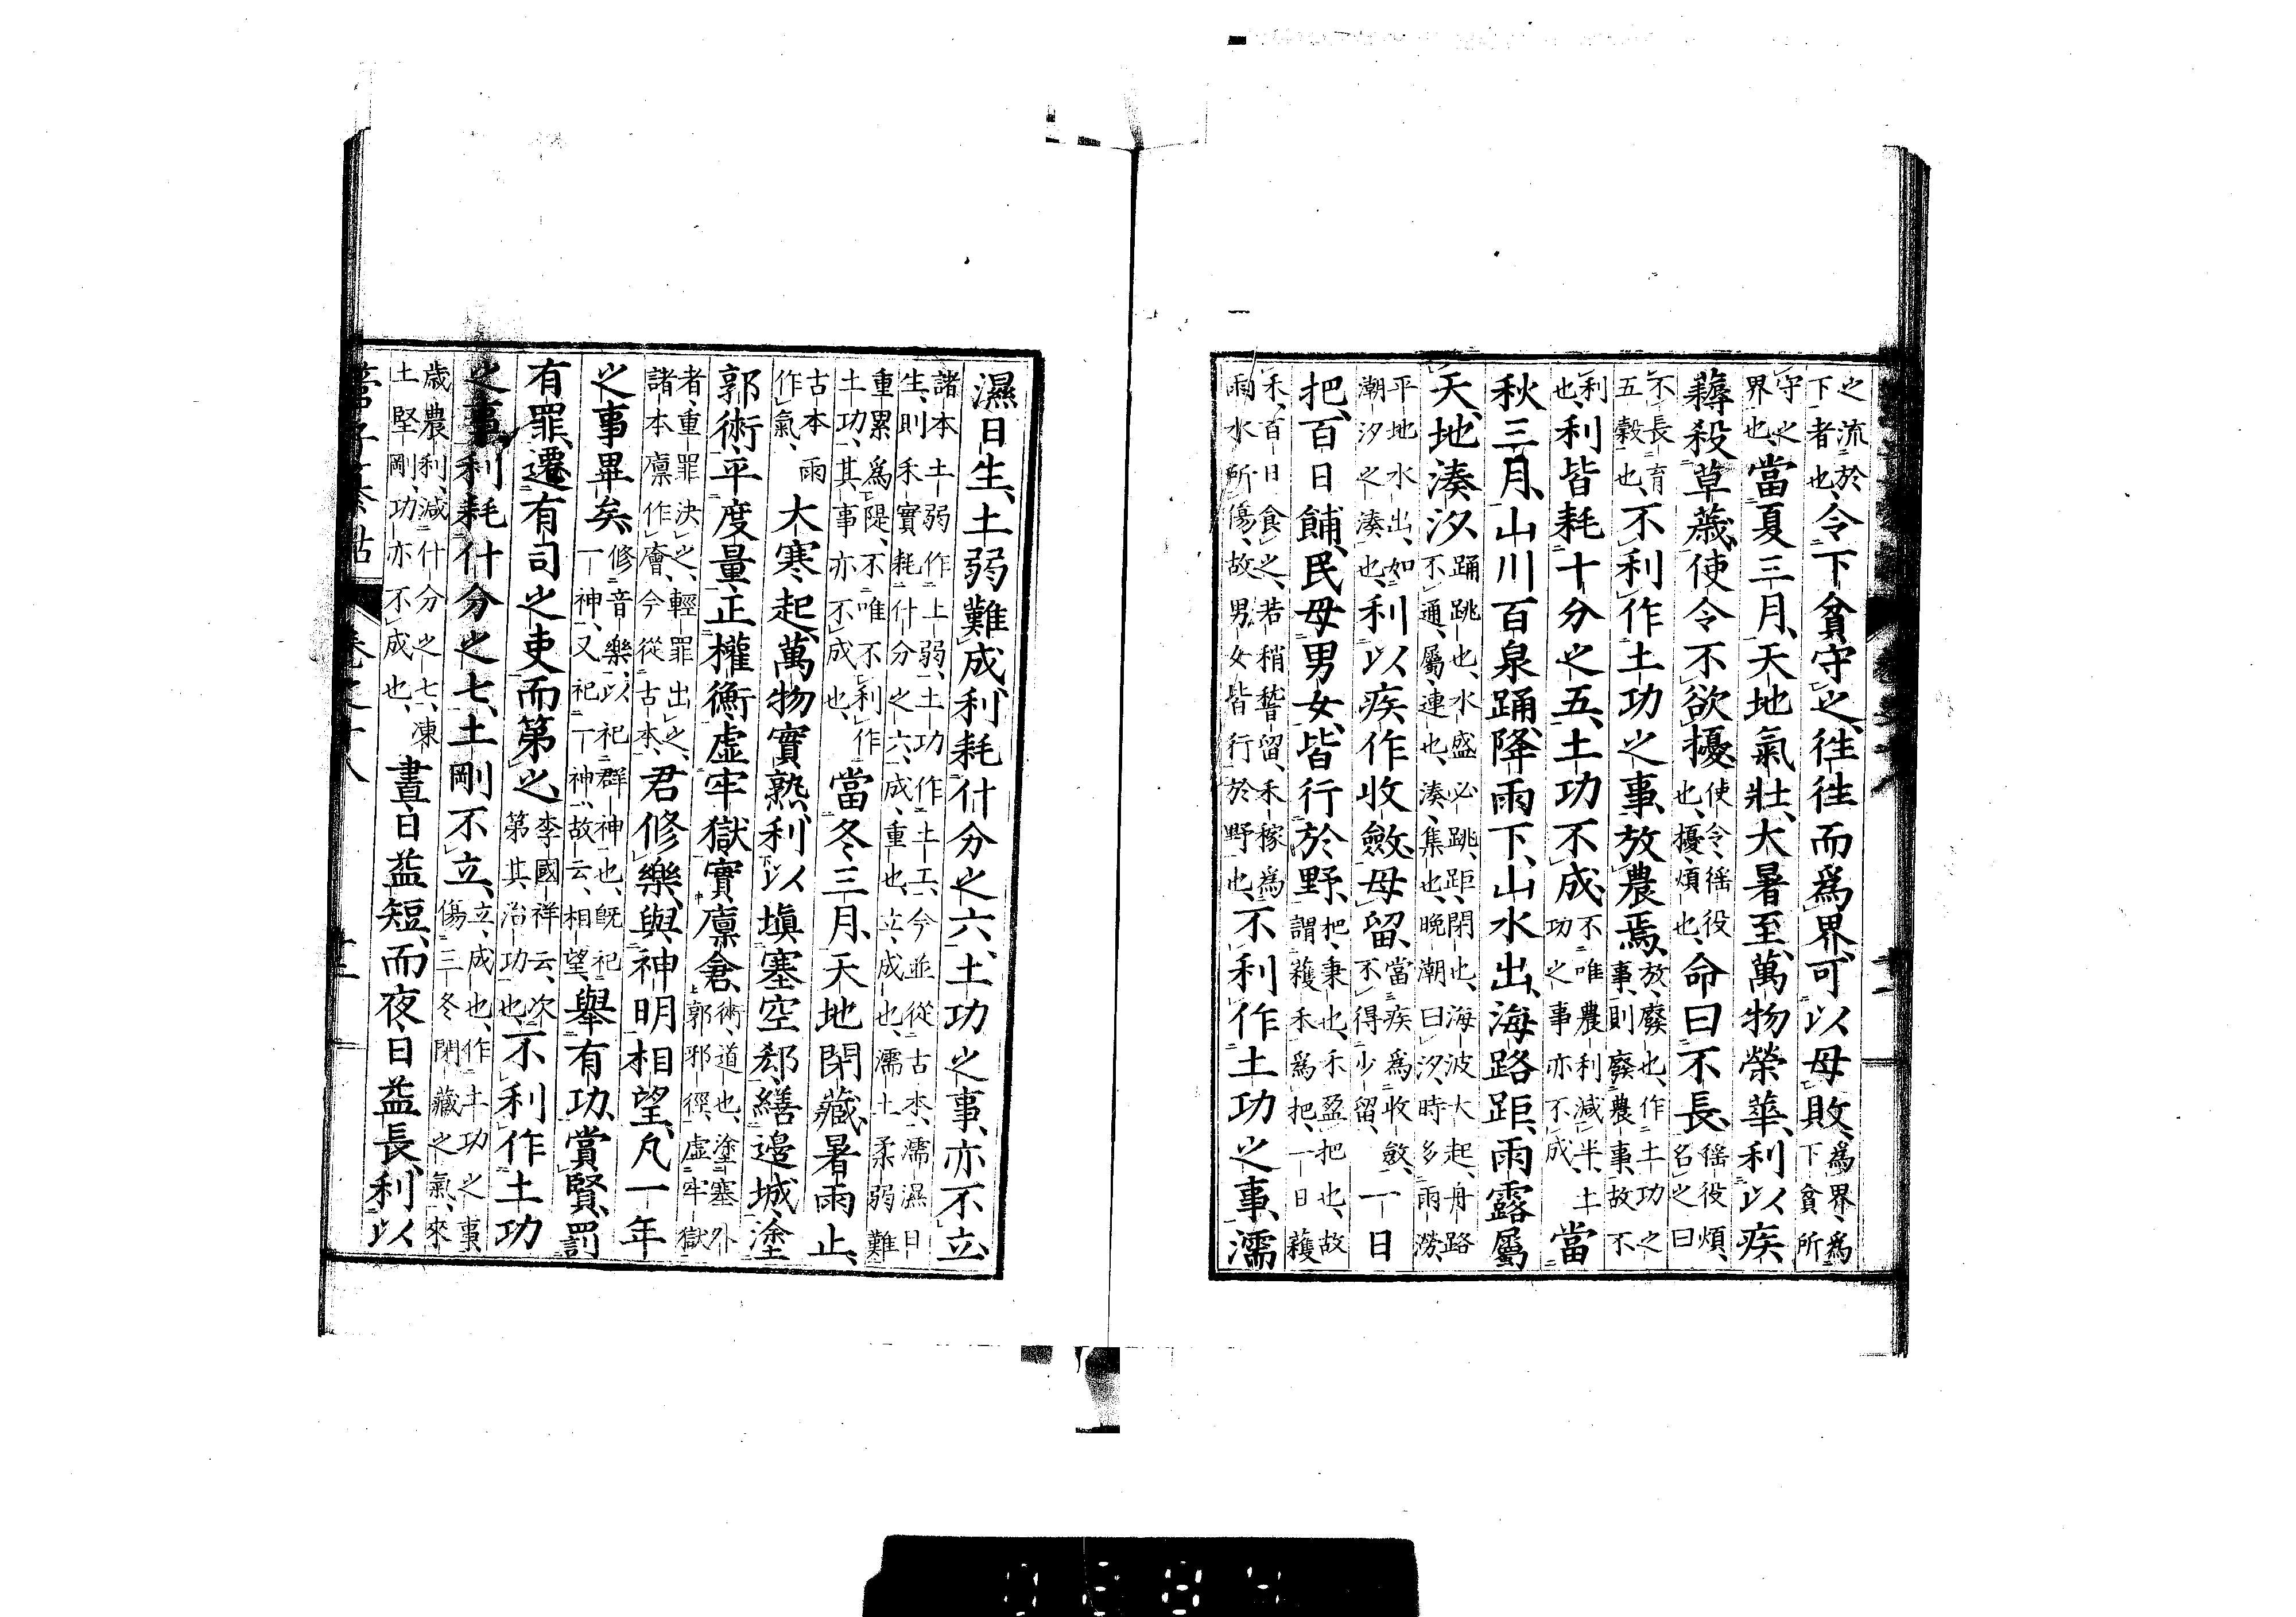 之流於下者也、令下貧守之、往往而爲界、可以毋敗、爲界、爲下貧所
守之界也、當夏三月、天地氣壯、大暑至、萬物榮華、利以疾
薅殺草薉、使令不欲擾、使令、徭役也、擾、煩也、命曰不長、徭役煩、名之曰
不長育五穀也、不利作土功之事、放農焉、放、廢也、作土功之事、則廢農事、故不
利也、利皆耗十分之五、土功不成、不唯農利減半、土功之事亦不成、當
秋三月、山川百泉踊、降雨下、山水出、海路距、雨露屬
天地湊汐、踊、跳也、水盛必跳、距、閉也、海波大起、舟路不通、屬、連也、湊、集也、晚潮曰汐、時多雨澇
平地水出、如潮汐之湊也、利以疾作收斂、毋留、當疾爲收斂、不得少留、一日
把、百日餔、民毋男女、皆行於野、把、秉也、禾盈把也、故謂穫禾爲把、一日穫
禾、百日食之、若稍稽留、禾稼爲雨水所傷、故男女皆行於野也、不利作土功之事、濡
濕日生、土弱難成、利耗什分之六、土功之事亦不立、
諸本土弱作上弱、土功作土工、今並從古本、濡濕日生、則禾實耗什分之六、成、重也、立、成也、濡土柔弱難
重累爲隄、不唯不利作土功、其事亦不成也、當冬三月、天地閉藏、暑雨止、
古本雨作氣、大寒起、萬物實熟、利以塡塞空郄、繕邊城、塗
郭術、平度量、正權衡、虛牢獄、實廩倉、術、道也、塗塞外郭邪徑、虛牢獄
者、重罪決之、輕罪出之、諸本廩作廥、今從古本、君修樂、與神明相望、凡一年
之事畢矣、修音樂、以祀群神也、既祀一神、又祀一神、故云、相望、舉有功、賞賢、罰
有罪、遷有司之吏而第之、李國祥云、次第其治功也、不利作土功
之事、利耗什分之七、土剛不立、立、成也、作土功之事、傷三冬閉藏之氣、來
歲農利、減什分之七、凍土堅剛、功亦不成也、晝日益短、而夜日益長、利以